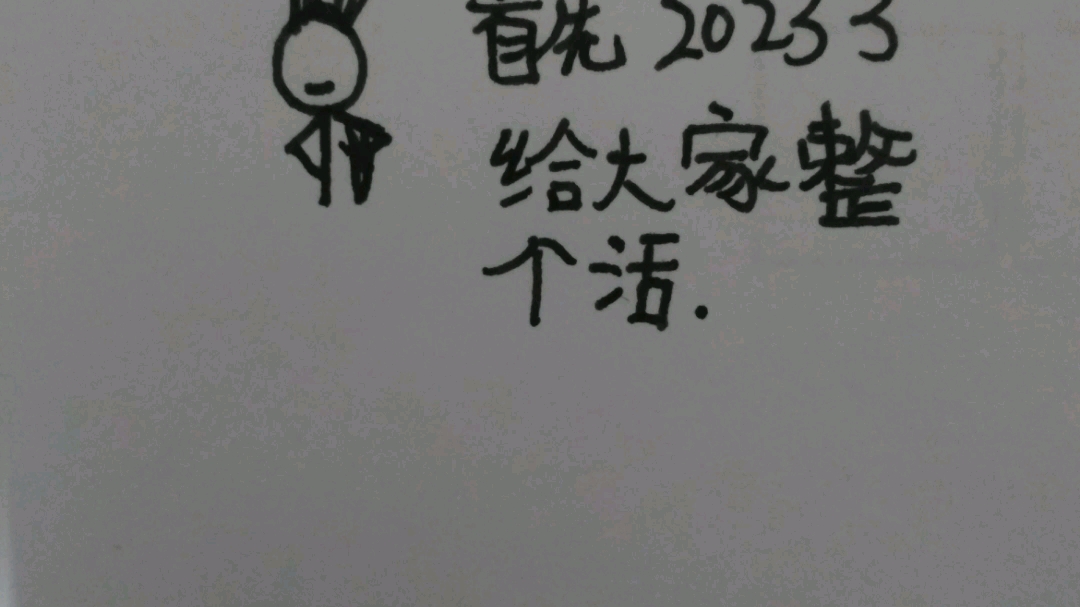 首先 2023了
给大家整
个活.